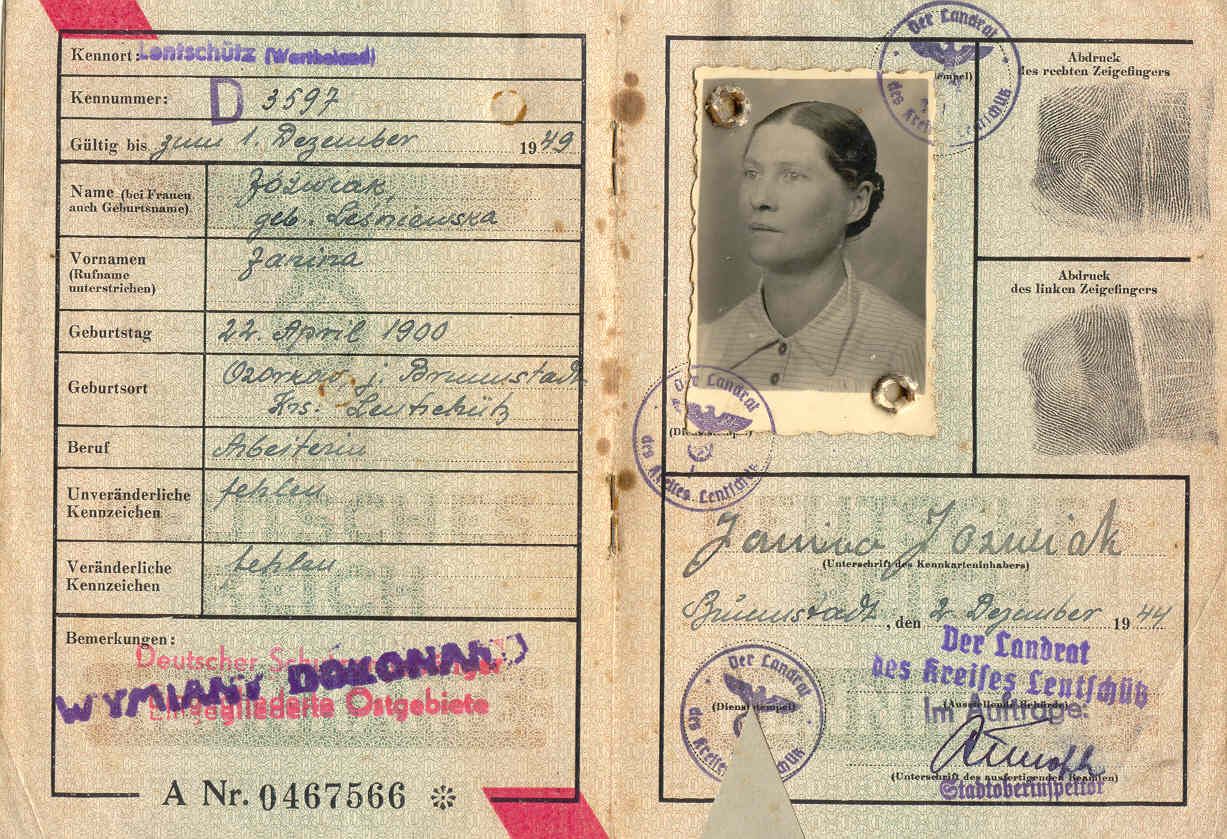 Kennort: Lentschütz (Wartheland)
Kennummer: D 3597
Gültig bis zum 1. Dezember 1949
Name (bei Frauen
auch Geburtsname)
Jóźwiak,
geb. Leśniewska
Vornamen
(Rufname
unterstrichen)
Janina
Geburtstag 22. April 1900
Geburtsort
Ozorkow, j. Brunnstadt
Krs. Lentschütz
Beruf Arbeiterin
Unveränderliche
Kennzeichen
fehlen
Veränderliche
Kennzeichen
fehlen
DEUTSCHES
REICH
Bemerkungen:
Deutscher
WYMIANY DOKONANO
Eingegliederte Ostgebiete
A Nr. 0467566
Der Landrat
des Kreises Lentschütz
Abdruck
des rechten Zeigefingers
Abdruck
des linken Zeigefingers
Der Landrat
des Kreises Lentschütz
Janina Jozwiak
(Unterschrift des Kennkarteninhabers)
Brunnstadt, den 2. Dezember 1944
Der Landrat
des Kreises Lentschütz
(Ausstellende Behörde)
Im Auftrage:
Der Landrat
des Kreises
(Dienststempel)
(Unterschrift des ausfertigenden Beamten)
Stadtoberinspektor